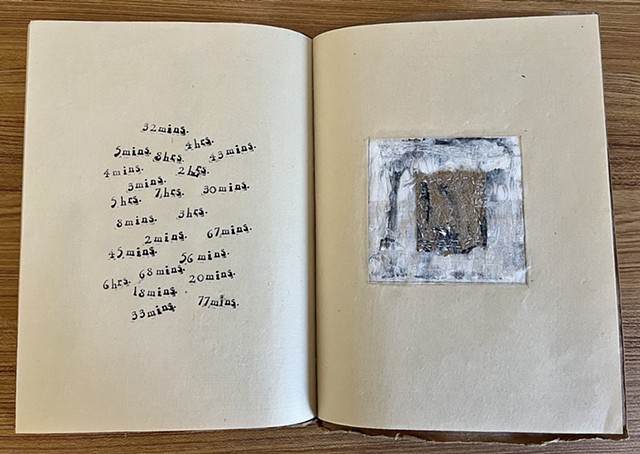 32mins.
4hrs.
5mins. 8hrs. 43mins.
4mins. 2hrs.
3mins.
5hrs. 7hrs. 30mins.
8mins. 3hrs.
2mins. 67mins.
45mins. 56mins.
68mins.
6hrs. 20mins.
18mins.
33mins. 77mins.